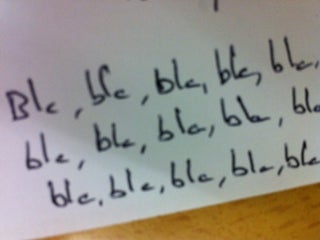 Bla, bla, bla, bla, bla,
bla, bla, bla, bla, bla
bla, bla, bla, bla, bla